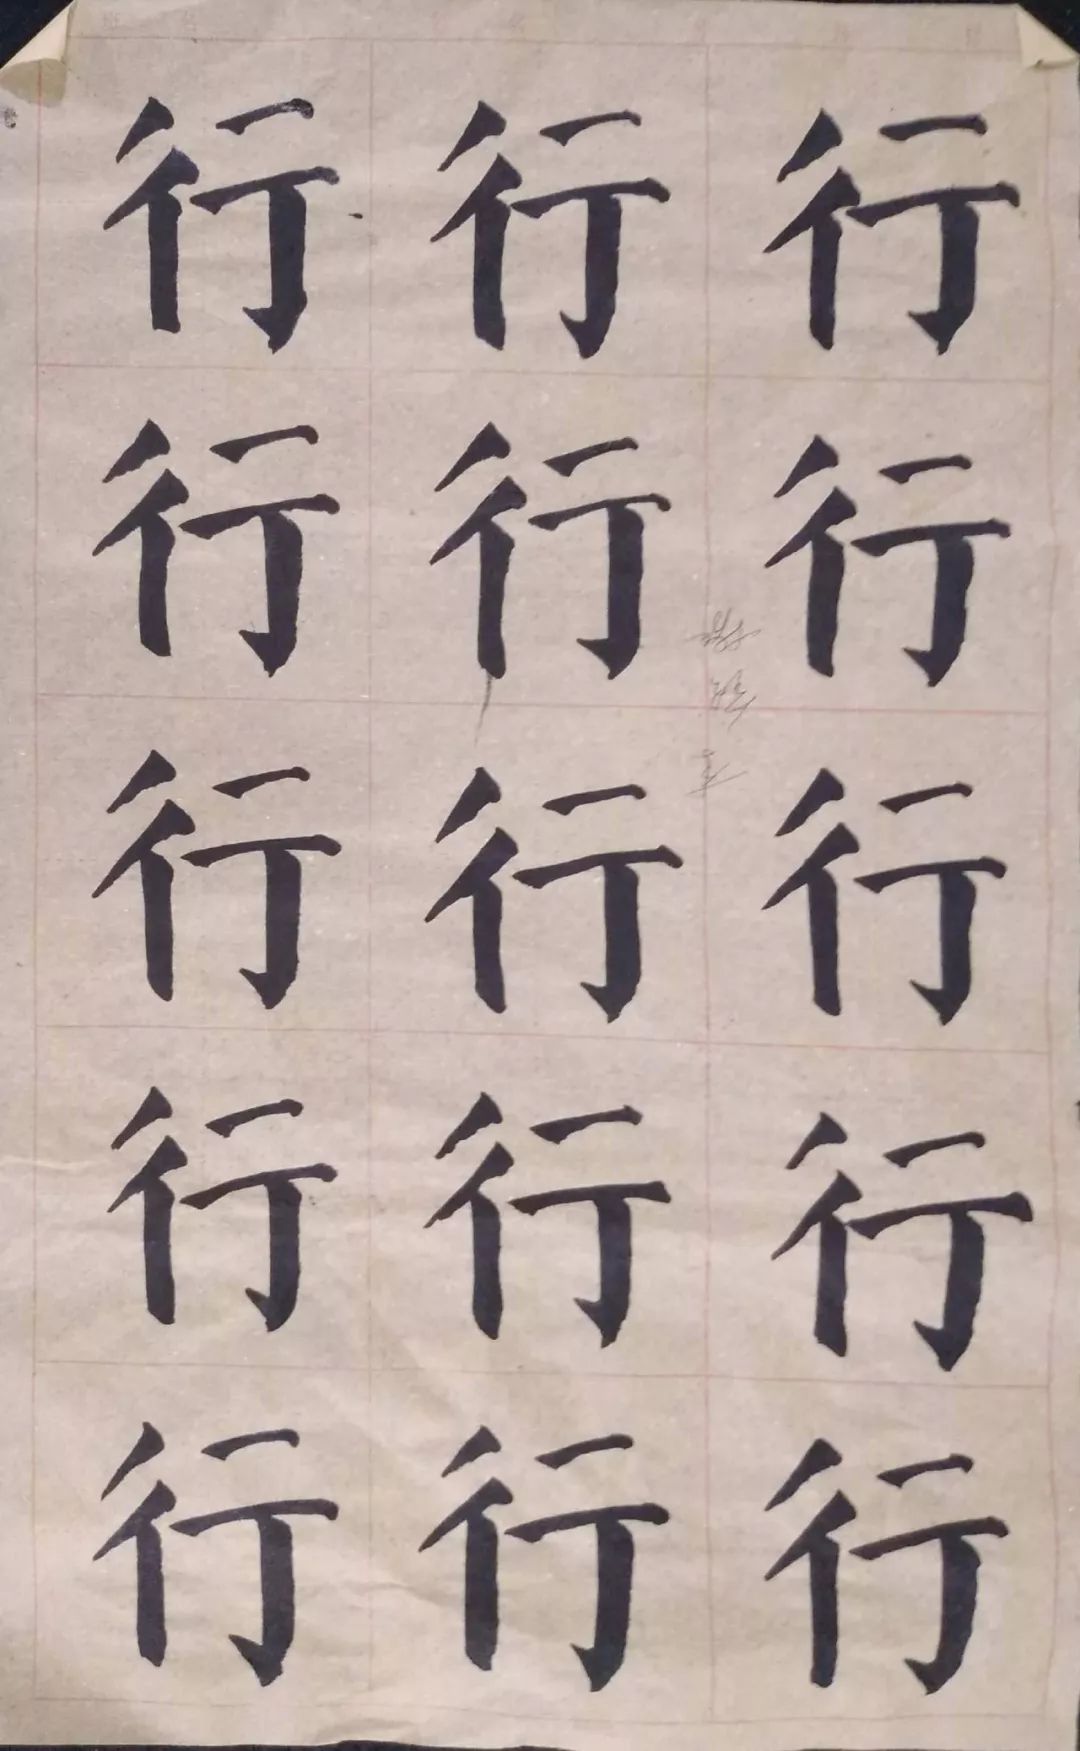 行 行 行
行 行 行
行 行 行
行 行 行
行 行 行